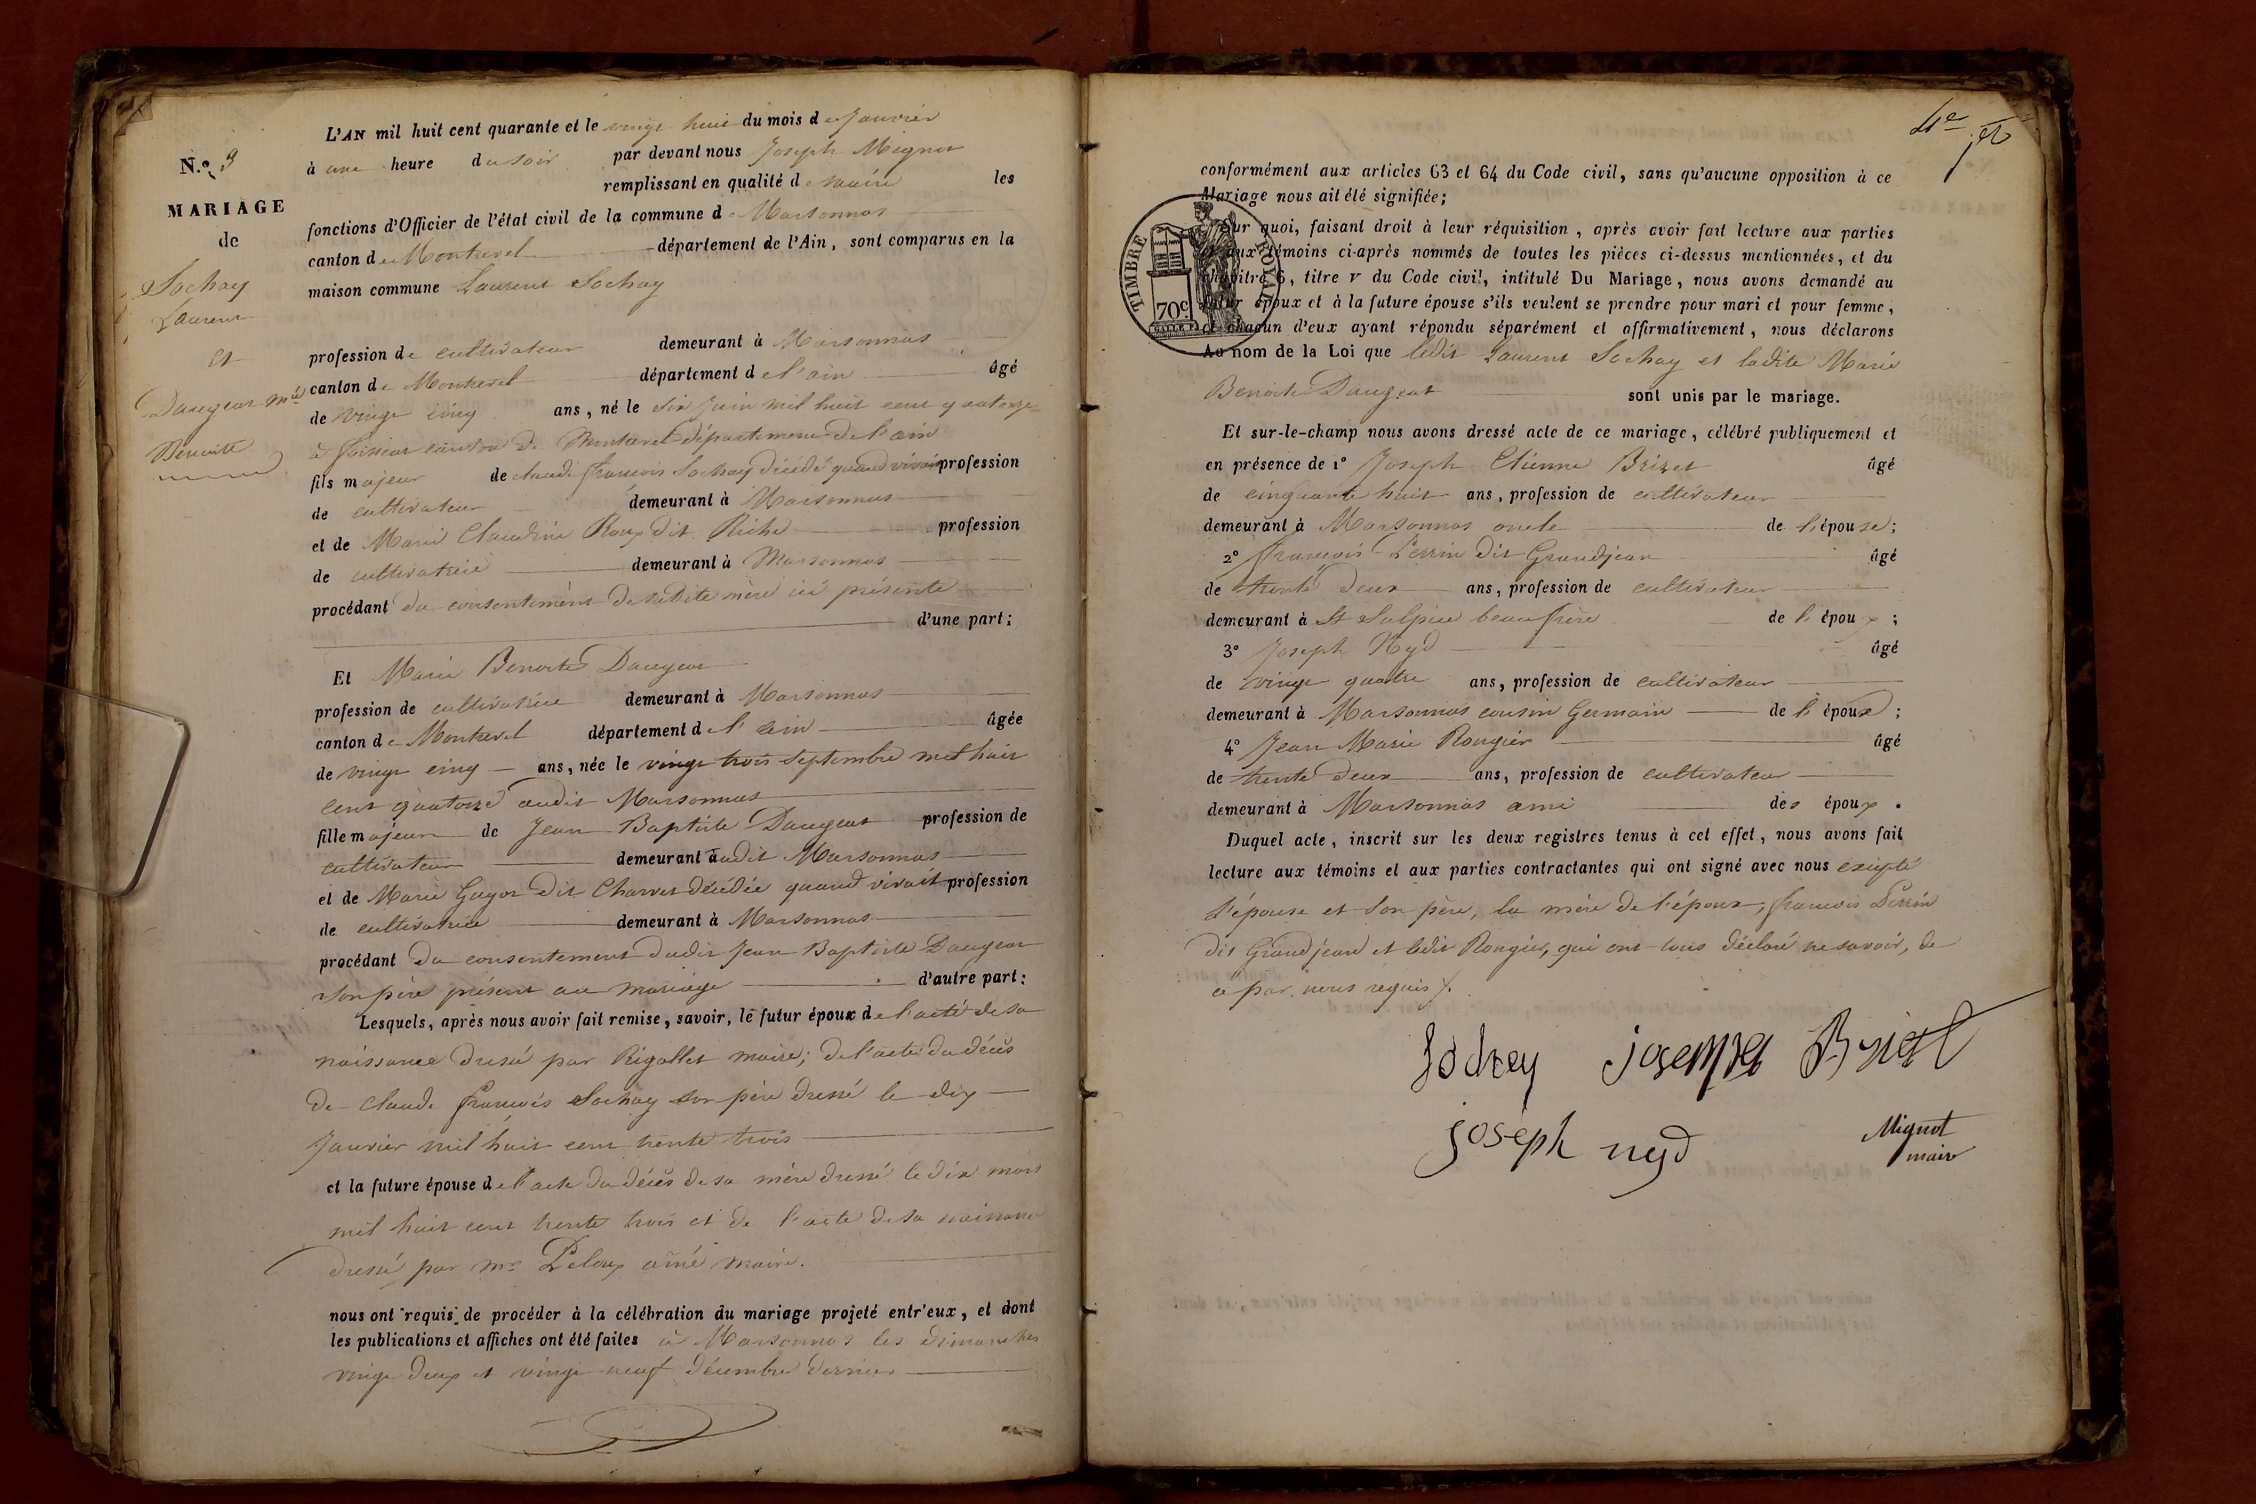 L'AN mil huit cent quarante et le vingt huit du mois de Janvier
N.º 3
à une heure du soir par devant nous Joseph Mignot
remplissant en qualité de maire les
MARIAGE
fonctions d'Officier de l'état civil de la commune de Marsonnas
de
canton de Montrevel département de l'Ain, sont comparus en la
Sochay
maison commune Laurent Sochay
Laurent
et
profession de cultivateur demeurant à Marsonnas
Daugeat Mie
canton de Montrevel département de l'ain âgé
de vingt cinq ans, né le six Juin mil huit cent quatorze
Benoite
à canton de Montrevel département de l'ain
fils majeur de claude françois Sochay décédé quand vivait profession
de cultivateur demeurant à Marsonnas
et de Marie Claudine Roux dit Riche profession
de cultivatrice demeurant à Marsonnas
procédant du consentement de sadite mère ici présente
d'une part;
Et Marie Benoite Daugeat
profession de cultivatrice demeurant à Marsonnas
canton de Montrevel département de l'ain âgée
de vingt cinq ans, née le vingt trois septembre mil huit
cent quatorze audit Marsonnas
fille majeure de Jean Baptiste Daugeat profession de
cultivateur demeurant audit Marsonnas
et de Marie Guyot dit Charvet décédée quand vivait profession
de cultivatrice demeurant à Marsonnas
procédant du consentement dudit Jean Baptiste Daugeat
son père présent au mariage d'autre part;
Lesquels, après nous avoir fait remise, savoir, le futur époux de l'acte de sa
naissance dressé par Rigollet maire; de l'acte du décès
de claude françois Sochay son père dressé le dix
Janvier mil huit cent trente trois
et la future épouse de l'acte du décès de sa mère dressé le dix mars
mil huit cent trente trois et de l'acte de sa naissance
dressé par Mr Peloux ainé maire.
nous ont requis de procéder à la célébration du mariage projeté entr'eux, et dont
les publications et affiches ont été faites à Marsonnas les dimanches
vingt deux et vingt neuf décembre dernier
conformément aux articles 63 et 64 du Code civil, sans qu'aucune opposition à ce
Mariage nous ait été signifiée;
TIMBRE ROYAL
70c.
Sur quoi, faisant droit à leur réquisition, après avoir fait lecture aux parties
et aux témoins ci-après nommés de toutes les pièces ci-dessus mentionnées, et du
chapitre 6, titre v du Code civil, intitulé Du Mariage, nous avons demandé au
futur époux et à la future épouse s'ils veulent se prendre pour mari et pour femme,
et chacun d'eux ayant répondu séparément et affirmativement, nous déclarons
Au nom de la Loi que ledit Laurent Sochay et ladite Marie
Benoite Daugeat sont unis par le mariage.
Et sur-le-champ nous avons dressé acte de ce mariage, célébré publiquement et
en présence de 1º Joseph Etienne Brizet âgé
de cinquante huit ans, profession de cultivateur
demeurant à Marsonnas oncle de l'épouse;
2º françois Perrin dit Grandjean âgé
de trente deux ans, profession de cultivateur
demeurant à St Sulpice beau frère de l'époux;
3º Joseph Nyd âgé
de vingt quatre ans, profession de cultivateur
demeurant à Marsonnas cousin Germain de l'époux;
4º Jean Marie Rongier âgé
de trente deux ans, profession de cultivateur
demeurant à Marsonnas ami des époux.
Duquel acte, inscrit sur les deux registres tenus à cet effet, nous avons fait
lecture aux témoins et aux parties contractantes qui ont signé avec nous excepté
l'épouse et son père, la mère de l'époux, françois Perrin
dit Grandjean et ledit Rongier, qui ont tous déclaré ne savoir, de
ce par nous requis.
Sochey joseph Brizet
joseph nyd Mignot
maire